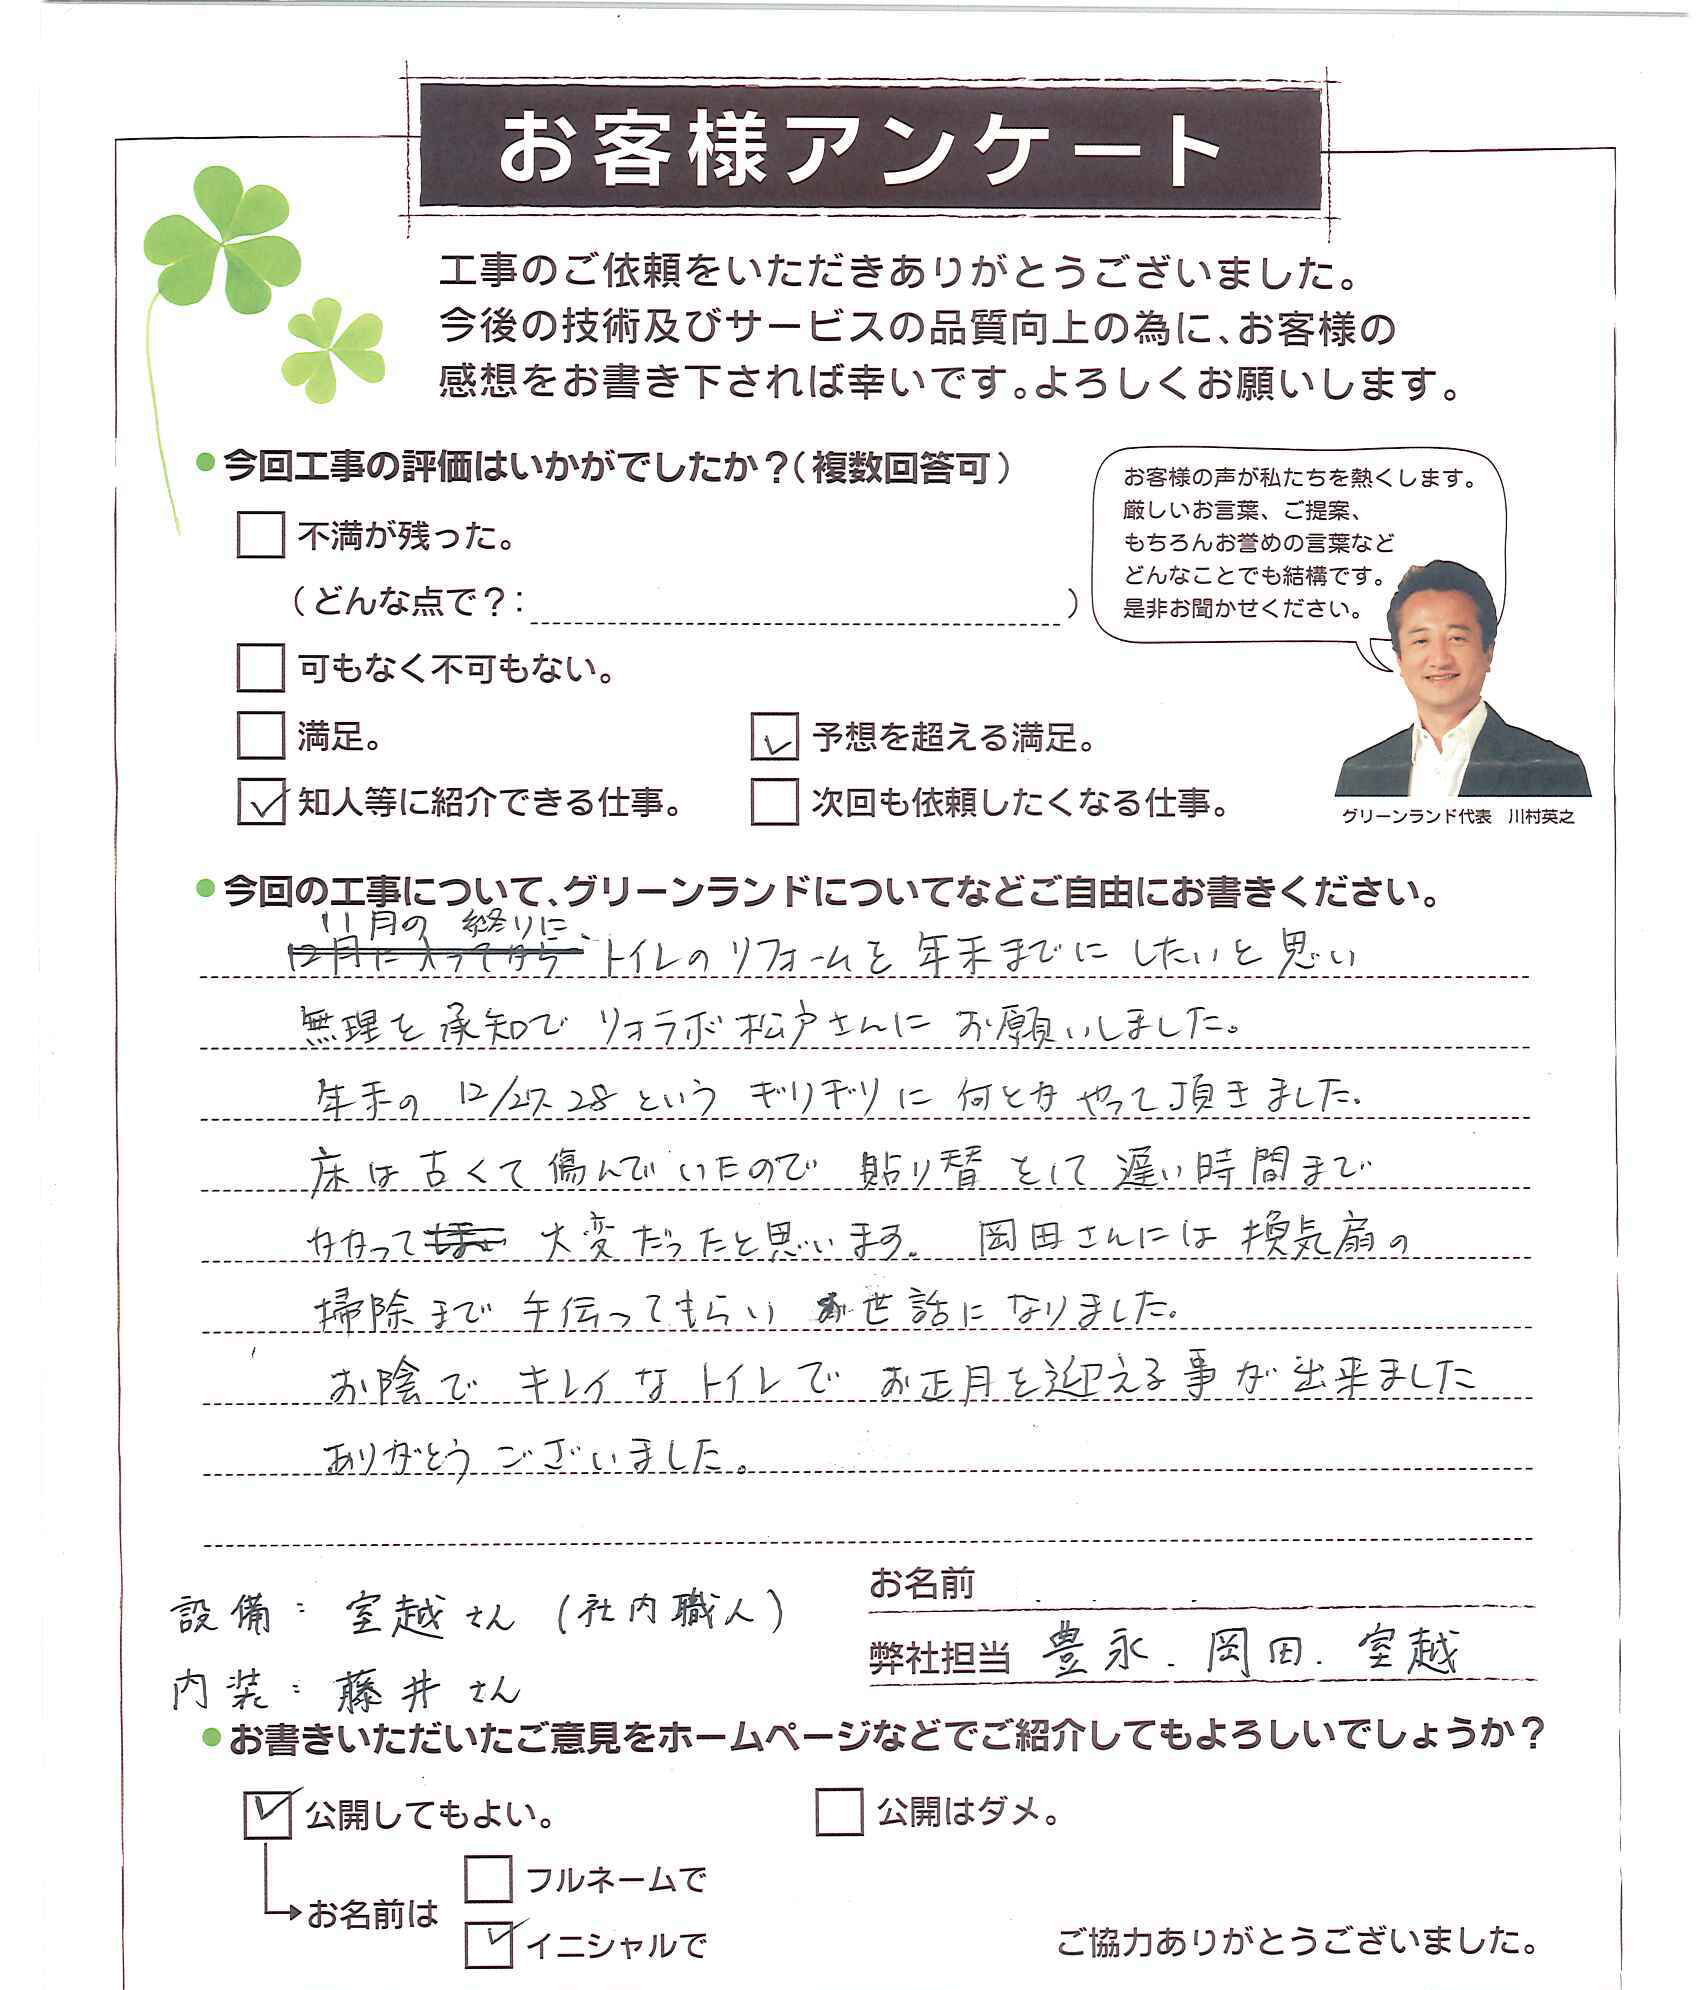 お客様アンケート
工事のご依頼をいただきありがとうございました。
今後の技術及びサービスの品質向上の為に、お客様の
感想をお書き下されば幸いです。よろしくお願いします。
●今回工事の評価はいかがでしたか？（複数回答可）
不満が残った。
（どんな点で？：　）
可もなく不可もない。
満足。
予想を超える満足。
知人等に紹介できる仕事。
次回も依頼したくなる仕事。
お客様の声が私たちを熱くします。
厳しいお言葉、ご提案、
もちろんお誉めの言葉など
どんなことでも結構です。
是非お聞かせください。
グリーンランド代表　川村英之
●今回の工事について、グリーンランドについてなどご自由にお書きください。
11月の 終りに、
12月に入ってから トイレのリフォームを 年末までに したいと 思い
無理を 承知で リオラボ 松戸さんに お願いしました。
年末の 12/27. 28 という ギリギリに 何とか やって頂きました.
床は古くて 傷んでいたので 貼り替として 遅い時間まで
かかって 大変だったと思います. 岡田さんには 換気扇の
掃除まで 手伝ってもらい お世話に なりました.
お陰で キレイな トイレで お正月を迎える事が 出来ました
ありがとう ございました。
設備： 室越さん （社内職人）
内装： 藤井さん
お名前
弊社担当 豊永. 岡田. 室越
●お書きいただいたご意見をホームページなどでご紹介してもよろしいでしょうか？
公開してもよい。
公開はダメ。
お名前は
フルネームで
イニシャルで
ご協力ありがとうございました。